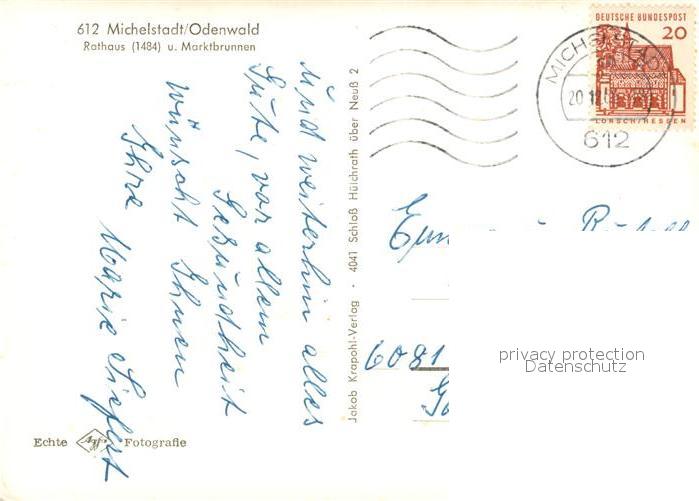 612 Michelstadt/Odenwald
Rathaus (1484) u. Marktbrunnen
Und weiterhin alles
Gute, vor allem
Gesundheit
wünscht Ihnen
Ihre Marie Siefert
Echte Agfa Fotografie
Jakob Krapohl-Verlag · 4041 Schloß Hülchrath über Neuß 2
DEUTSCHE BUNDESPOST
20
LORSCH/HESSEN
MICHELSTADT
612
6081
privacy protection
Datenschutz